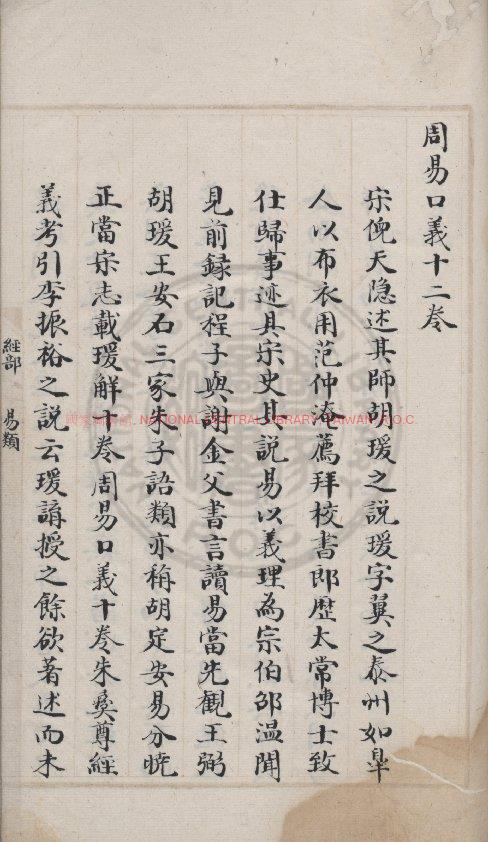 周易口義十二卷
宋倪天隐述其師胡瑗之說瑗字翼之泰州如皐
人以布衣用范仲淹薦拜校書郎歷太常博士致
仕歸事迹具宋史其說易以義理為宗伯邵温聞
見前録記程子與謝金父書言讀易當先觀王弼
胡瑗王安石三家朱子語類亦稱胡定安易分晓
正當宋志載瑗解十卷周易口義十卷朱彝尊經
義考引李振裕之說云瑗講授之餘欲著述而未
經部 易類
國家圖書館 NATIONAL CENTRAL LIBRARY, TAIWAN, R.O.C.